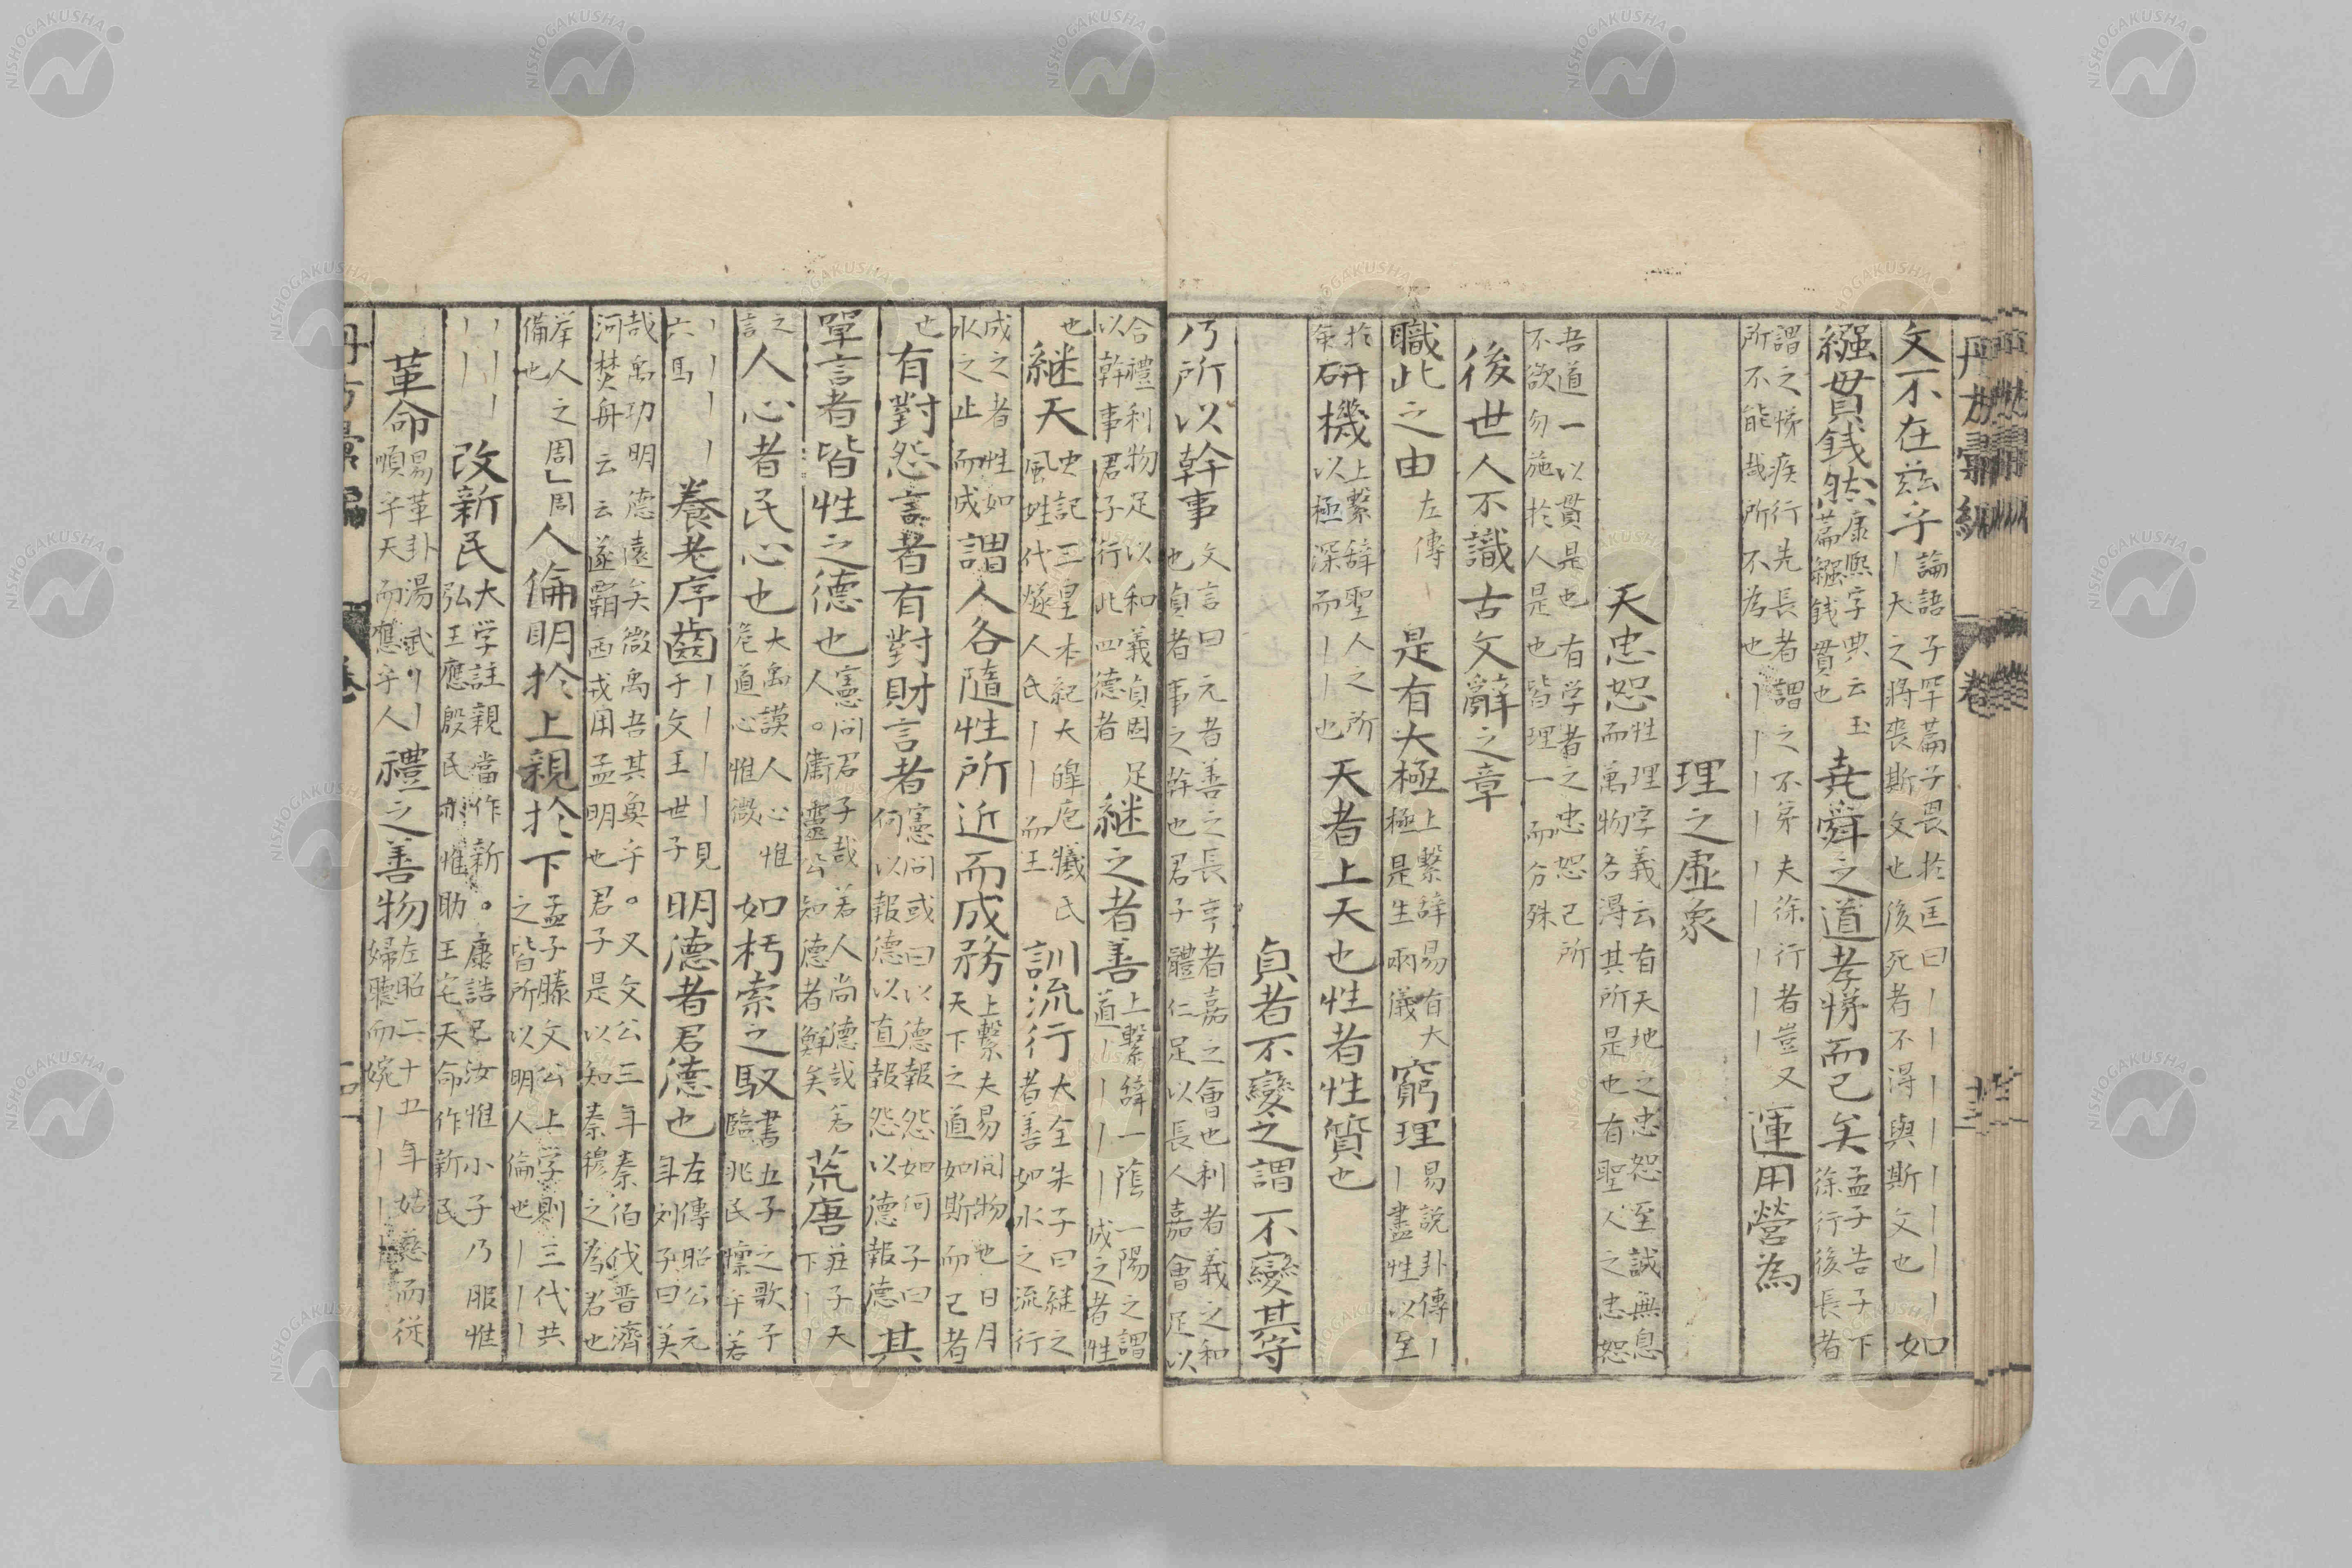 丹方彙編 卷 十三
文不在茲乎 論語子罕篇子畏於匡曰丨丨丨丨丨丨丨 丨大之將喪斯文也後死者不得與斯文也 如
繦貫銭然 康熙字典云玉篇繦銭貫也 尭舜之道孝悌而已矣 孟子告子下 徐行後長者
謂之悌疾行先長者謂之不弟夫徐行者豈又 所不能哉所不為也丨丨丨丨丨丨丨丨 運用營為
理之虚象
天忠恕 性理字義云有天地之忠恕至誠無息 而萬物各得其所是也有聖人之忠恕
吾道一以貫是也有学者之忠恕己所 不欲勿施於人是也皆理一而分殊
後世人不識古文辭之章
職此之由 左傳 是有大極 上繫辞易有大極是生兩儀 窮理 易説卦傳丨丨盡性以至
於 研機 上繫辞聖人之所以極深而丨丨也 天者上天也性者性質也
貞者不變之謂不變其守
乃所以幹事 文言曰元者善之長亨者嘉之會也利者義之和 也貞者事之幹也君子體仁足以長人嘉會足以
合禮利物足以和義貞固足 以幹事君子行此四德者 継之者善 上繋辞一陰一陽之謂 道丨丨丨丨成之者性
也 継天 史記三皇本紀大皥庖犧氏 風姓代燧人氏丨丨而王 訓流行 大全朱子曰継之 者善如水之流行
成之者性如 水之止而成 謂人各隨性所近而成務 上繋夫易開物 天下之道如斯而已者 也日月
也 有對怨言者有對財言者 憲問或曰以德報怨如何子曰 何以報德以直報怨以德報德 其
單言者皆性之德也 憲問君子哉若人尚德哉若 人。衛靈公知德者鮮矣 荒唐 莊子天下丨丨
之言 人心者民心也 大禹謨人心惟 危道心惟微 如朽索之馭 書五子之歌予 臨兆民懍乎若
丨丨丨丨丨 六馬 養老序齒 丨丨丨丨見 于文王世子 明德者君德也 左傳昭公元 年刘子曰美
哉禹功明德遠矣微禹吾其魚乎。又文公三年秦伯伐晋濟 河焚舟云云遂覇西戎用孟明也君子是以知秦穆之為君也
挙人之周」周 備也 人倫明於上親於下 孟子滕文公上学則三代共 之皆所以明人倫也丨丨丨
丨丨丨丨丨 改新民 大学註親當作新。康誥已汝惟小子乃服惟 弘王應殷民亦惟助王宅天命作新民
革命 易革卦湯武丨丨 順乎天而應乎人 禮之善物 左昭二十五年姑慈而従 婦聴而婉丨丨丨
丹方彙編 卷 十四